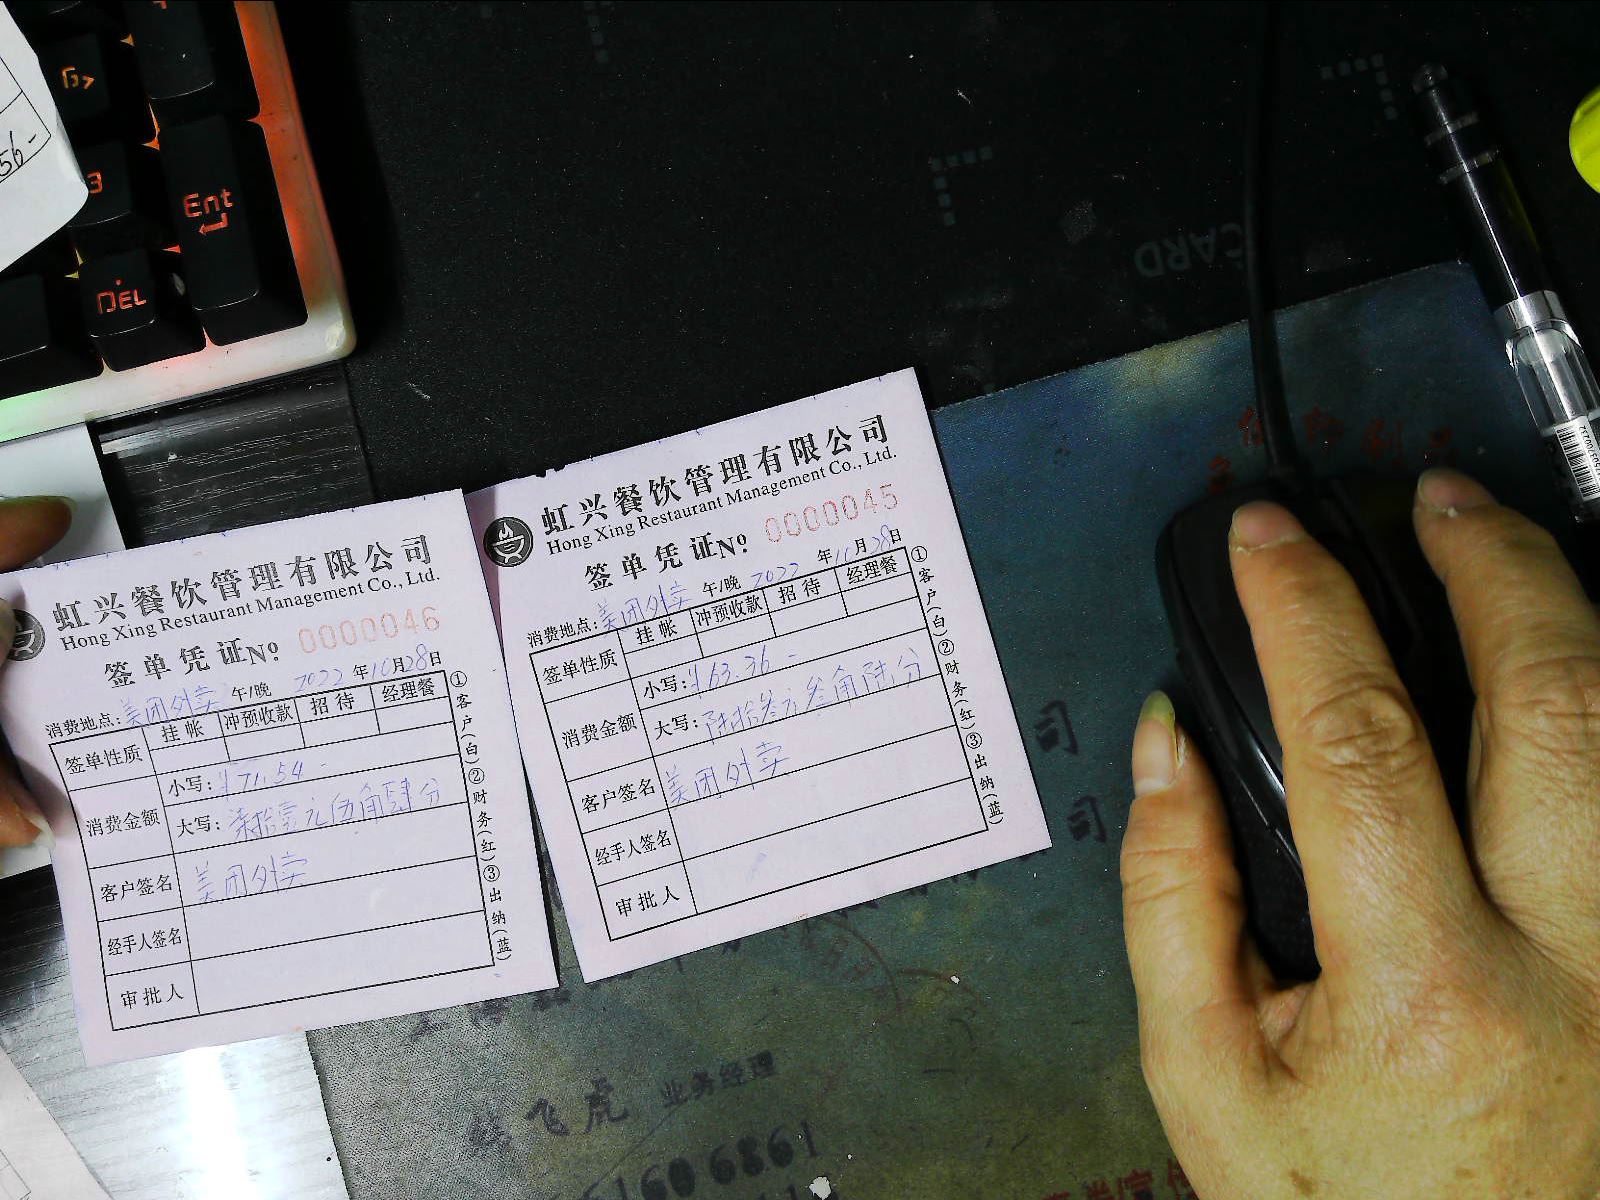 56-
3
Ent
DEL
CARD
虹兴餐饮管理有限公司
Hong Xing Restaurant Management Co., Ltd.
签单凭证No 0000046
消费地点: 美团外卖 午/晚 2022年10月28日
签单性质 挂帐 冲预收款 招待 经理餐
消费金额 小写: ¥71.54-
大写: 柒拾壹元伍角肆分
客户签名 美团外卖
经手人签名
审批人
①客户(白)②财务(红)③出纳(蓝)
虹兴餐饮管理有限公司
Hong Xing Restaurant Management Co., Ltd.
签单凭证No 0000045
消费地点: 美团外卖 午/晚 2022年10月28日
签单性质 挂帐 冲预收款 招待 经理餐
消费金额 小写: ¥63.36-
大写: 陆拾叁元叁角陆分
客户签名 美团外卖
经手人签名
审批人
①客户(白)②财务(红)③出纳(蓝)
司
司
飞虎 业务经理
1606861